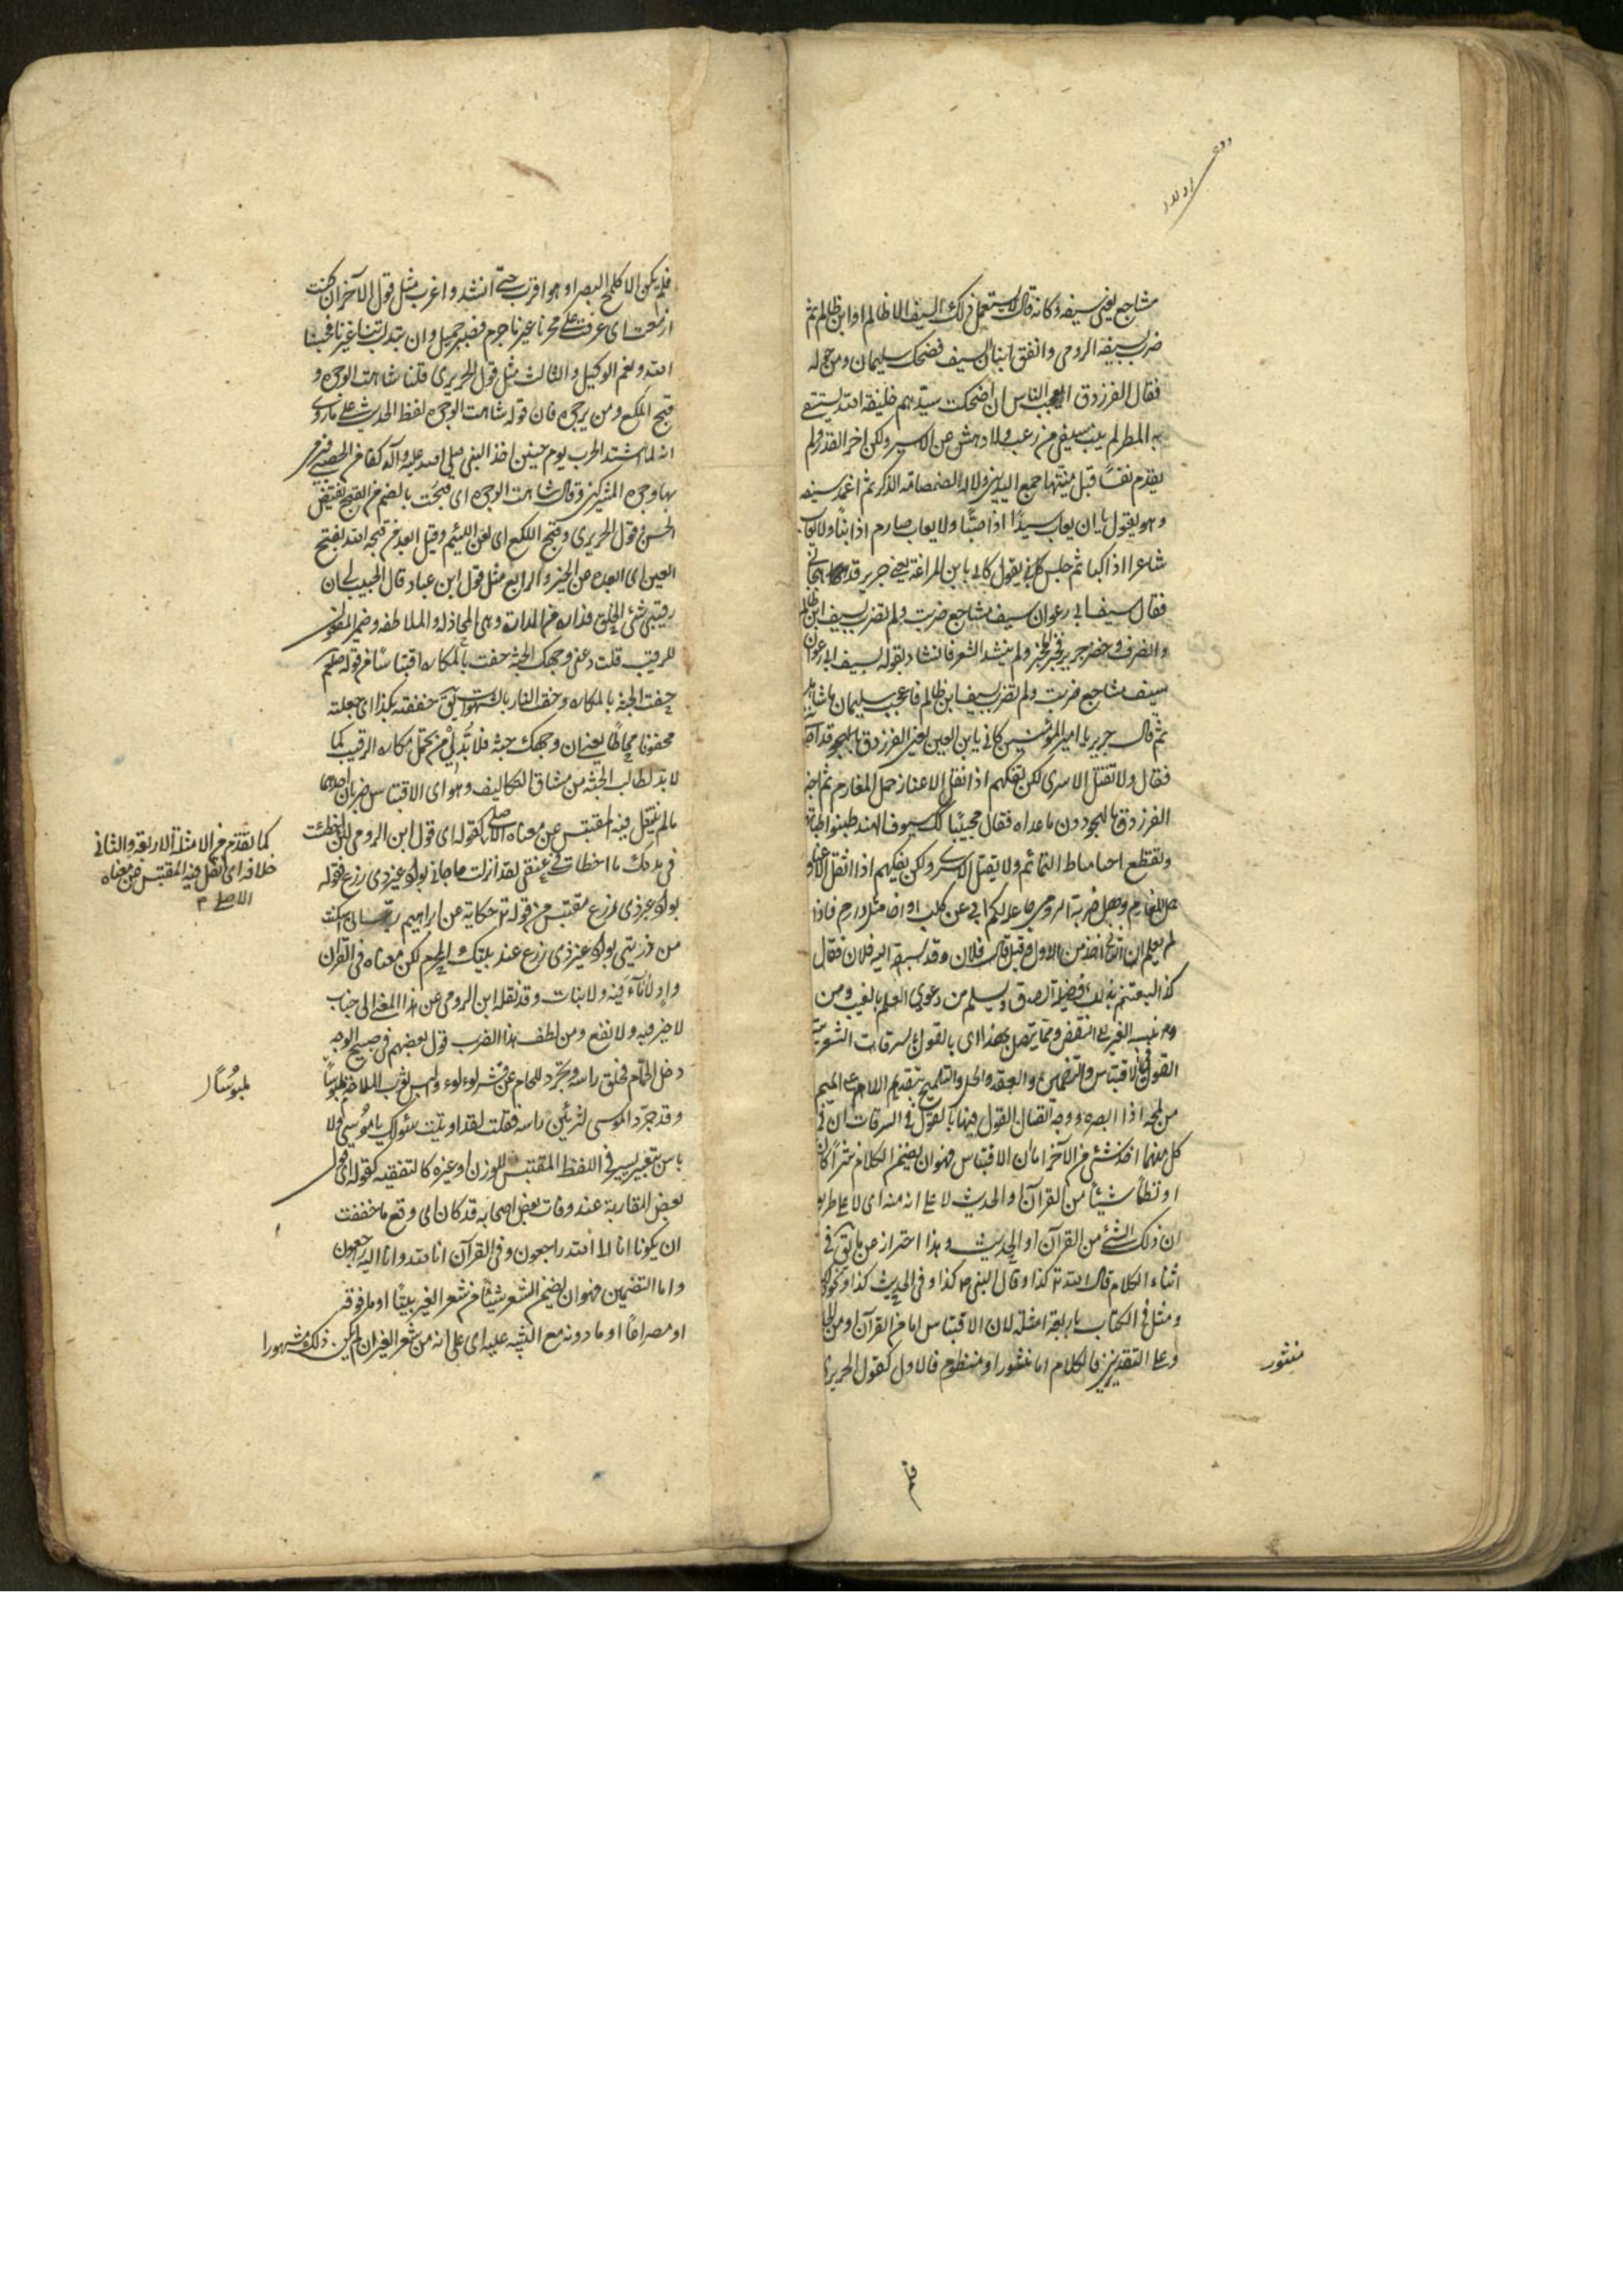 مشاجع يعنى سيفه وكانه قال لا يستعمل ذلك السيف الا ظالم او ابن ظالم ثم
ضرب بسيفه الرومى واتفق ان نبا السيف فضحك سليمان ومن حوله
فقال الفرزدق ايعجب الناس ان اضحكت سيدهم خليفة الله يستسقى
به المطر لم ينب سيفى من رعب ولا دهش عن الاسير ولكن اخر القدر ولم
يقدم نفسا قبل ميتتها جمع اليدين ولا الصمصامة الذكر ثم اغمد سيفه
وهو يقول ما ان يعاب سيد اذا صبا ولا يعاب صارم اذا نبا ولا يعاب
شاعر اذا كبا ثم جلس يقول كانى بابن المراغة يعنى جرير قد هجانى
فقال بسيف ابى رغوان سيف مشاجع ضربت ولم تضرب بسيف ابن ظالم
وانصرف وحضر جرير فخبر الخبر ولم ينشد الشعر فانشاد يقوله بسيف ابى رغوان
سيف مشاجع ضربت ولم تضرب بسيف ابن ظالم فاعجب سليمان ما شاهد
ثم قال جرير يا امير المؤمنين كانى بابن القين يعنى الفرزدق قد اجاب
فقال ولا تقتل الاسرى ولكن نفكهم اذا اثقل الاعناق حمل المغارم ثم اخبر
الفرزدق بالهجو دون ما عداه فقال مجيبا كذاك سيوف الهند تنبو ظباتها
وتقطع احيانا مناط التمائم ولا نقتل الاسرى ولكن نفكهم اذا اثقل الاعناق
حمل المغارم وهل ضربة الرومى جاعلة لكم ابا عن كليب او اخا مثل دارم فاذا
لم يعلم ان الثانى اخذ من الاول قيل قال فلان وقد سبقه اليه فلان فقال
كذا ليغتنم بذلك فضيلة الصدق ويسلم من دعوى العلم بالغيب ومن
نسبة الغير الى النقص ومما يتصل بهذا اى بالقول فى السرقات الشعرية
القول فى الاقتباس والتضمين والعقد والحل والتلميح بتقديم اللام على الميم
من لمحه اذا ابصره ووجه اتصال القول فيها بالقول فى السرقات ان فى
كل منهما اخذ شئ من الآخر اما الاقتباس فهو ان يضمن الكلام نثرا كان
او نظما شيئا من القرآن او الحديث لا على انه منه اى لا على طريقة
ان ذلك الشئ من القرآن او الحديث وهذا احتراز عما يقال فى
اثناء الكلام قال الله تع كذا وقال النبى ص كذا وفى الحديث كذا ونحو ذلك
ومثل فى الكتاب باربعة امثلة لان الاقتباس اما من القرآن او من الحديث
وعلى التقديرين فالكلام اما منثور او منظوم فالاول كقول الحريرى
منثور
فلم
فلم يكن الا كلمح البصر او هو اقرب حتى انشد واغرب مثل قول الآخر ان كنت
ازمعت اى عزمت على هجرنا من غير ما جرم فصبر جميل وان تبدلت بنا غيرنا فحسبنا
الله ونعم الوكيل والثالث مثل قول الحريرى قلنا شاهت الوجوه و
قبح اللكع ومن يرجوه فان قوله شاهت الوجوه لفظ الحديث على ما روى
انه لما اشتد الحرب يوم حنين اخذ النبى صلى الله عليه وآله كفا من الحصباء فرمى
بها وجوه المشركين وقال شاهت الوجوه اى قبحت بالضم من القبح نقيض
الحسن وقول الحريرى وقبح اللكع اى لعن اللئيم وقيل ابعد من قبحه الله بفتح
العين اى ابعده عن الخير والرابع مثل قول ابن عباد قال الحبيب لى ان
رقيبى سئ الخلق فداره من المداراة وهى المجاملة والملاطفة وضمير المفعول
للرقيب قلت دعنى وجهك الجنة حفت بالمكاره اقتباسا من قوله صلعم
حفت الجنة بالمكاره وحفت النار بالشهوات يق حففته بكذا اى جعلته
محفوفا محاطا يعنى ان وجهك جنة فلا بد لى من تحمل مكاره الرقيب كما
لا بد لطالب الجنة من مشاق التكاليف وهو اى الاقتباس ضربان احدهما
ما لم ينقل فيه المقتبس عن معناه الاصلى كقوله اى قول ابن الرومى لئن اخطئت
فى مدحك ما اخطأت فى منعى لقد انزلت حاجاتى بواد غير ذى زرع فقوله
بواد غير ذى زرع مقتبس من قوله تع حكاية عن ابراهيم ربنا انى اسكنت
من ذريتى بواد غير ذى زرع عند بيتك المحرم لكن معناه فى القرآن
واد لا ماء فيه ولا نبات وقد نقله ابن الرومى عن هذا المعنى الى جناب
لا خير فيه ولا نفع ومن لطف هذا الضرب قول بعضهم فى صبيح الوجه
دخل الحمام فحلق راسه وتجرد للحمام عن قشر لؤلوء والبس ثوب الملاحة ملبوسا
وقد جرد الموسى لتزئين راسه فقلت لقد اوتيت سؤلك يا موسى ولا
باس بتغيير يسير فى اللفظ المقتبس للوزن او غيره كالتقفية كقوله اى قول
بعض المغاربة عند وفات بعض اصحابه قد كان اى وقع ما خفت
ان يكونا انا الى الله راجعون وفى القرآن انا لله وانا اليه راجعون
واما التضمين فهو ان يضمن الشعر شيئا من شعر الغير بيتا او ما فوقه
او مصراعا او ما دونه مع التنبيه عليه اى على انه من شعر الغير ان لم يكن ذلك مشهورا
كما تقدم من الامثلة الاربعة والثانى
خلافه اى نقل فيه المقتبس عن معناه
الاصلى م
ملبوسا